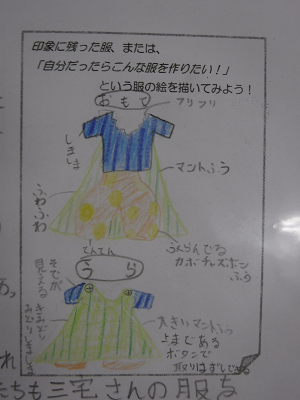 印象に残った服、または、
「自分だったらこんな服を作りたい！」
という服の絵を描いてみよう！
おもて
フリフリ
しましま
マントふう
ふわふわ
てんてん
ふくらんでる
カボチャズボン
ふう
うら
そでが
見える
大きいマントふう
上まである
ボタンで
取りはずしできる
たちも三宅さんの服を